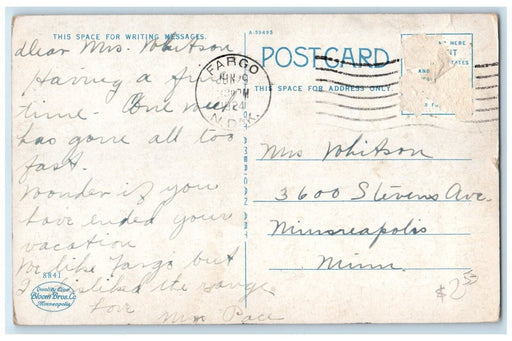 THIS SPACE FOR WRITING MESSAGES.
Dear Mrs. Whitson
Having a fine
time. One week
has gone all too
fast.
Wonder if you
have ended your
vacation
We like Fargo but
I disliked the
Love
Mrs Pace
8841
Quality Line
Bloom Bros. Co.
Minneapolis
A-59495
POST CARD
THIS SPACE FOR ADDRESS ONLY.
FARGO
JUN 29
1924
N.DAK.
HERE
AND
Mrs Whitson
3600 Stevens Ave.
Minneapolis
Minn.